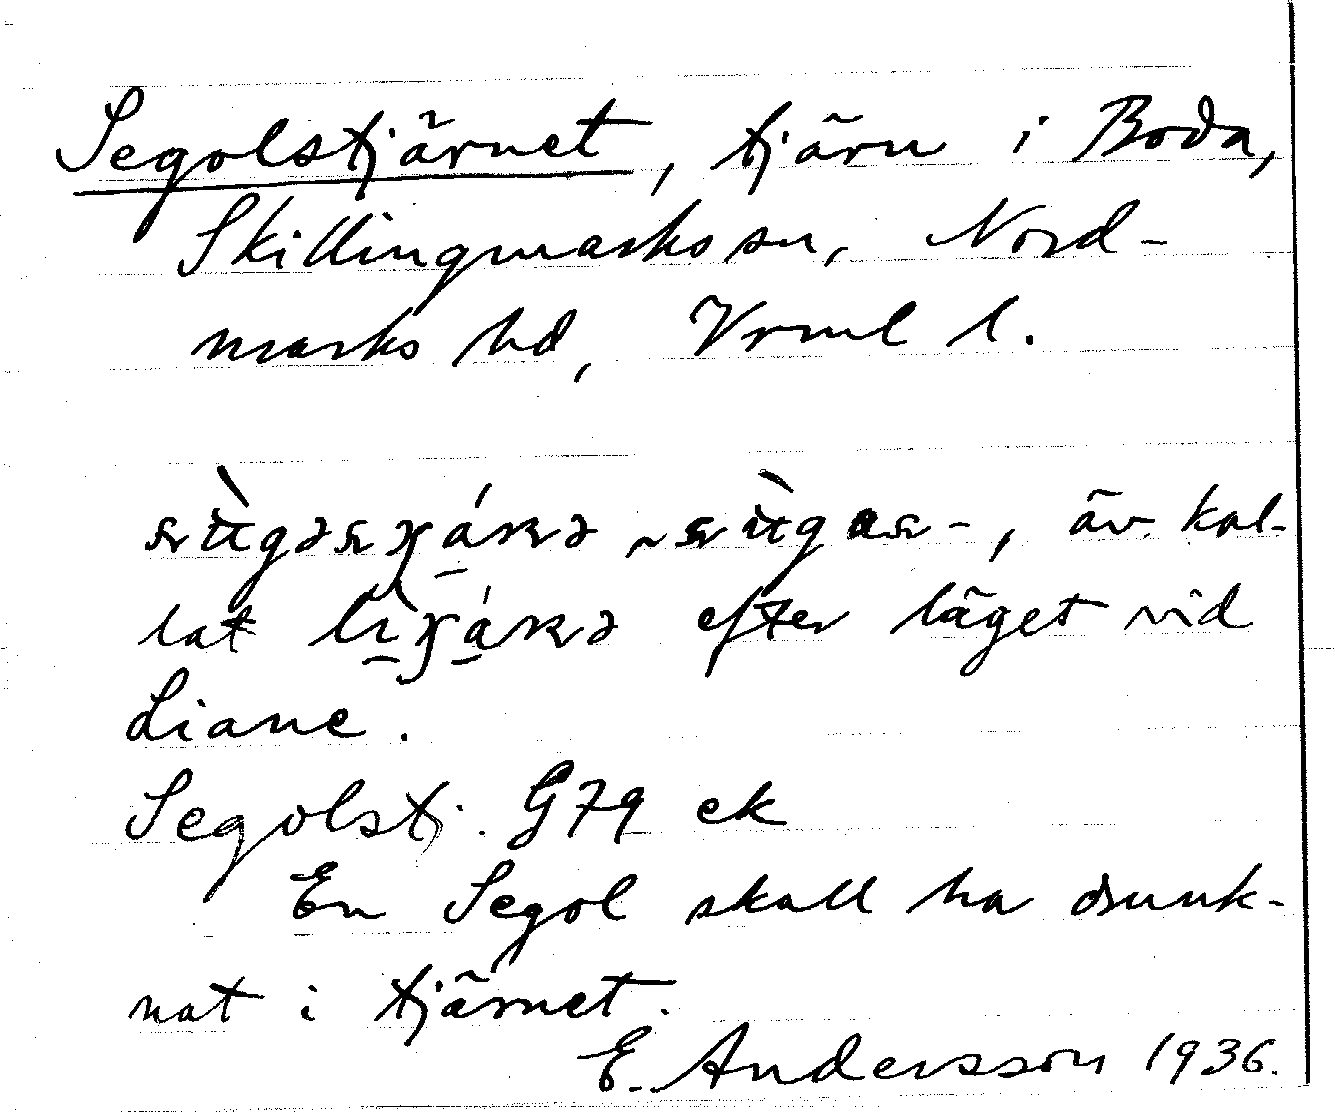 Segolstjärnet, tjärn i Boda,
Skillingmarks sn, Nord-
marks hd, Vrml l.
äv. kal-
lat efter läget vid
Liane.
Segolstj. G79 ek
En Segol skall ha drunk-
nat i tjärnet.
E. Andersson 1936.